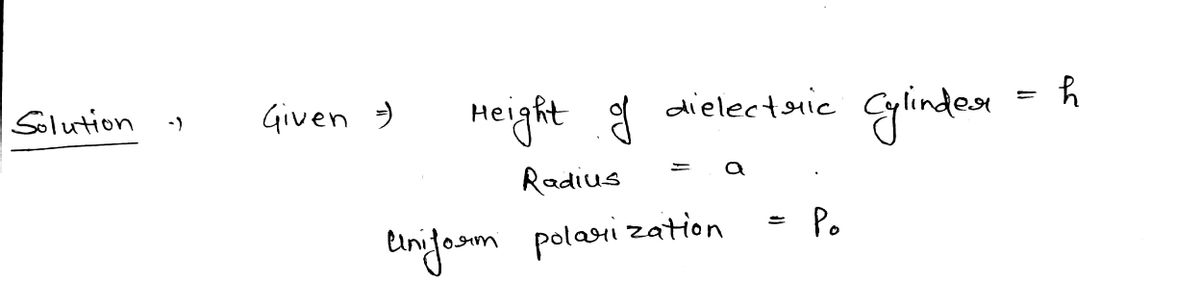 Solution :, Given ⇒ Height of dielectric Cylinder = h
Radius = a
Uniform polarization = P₀